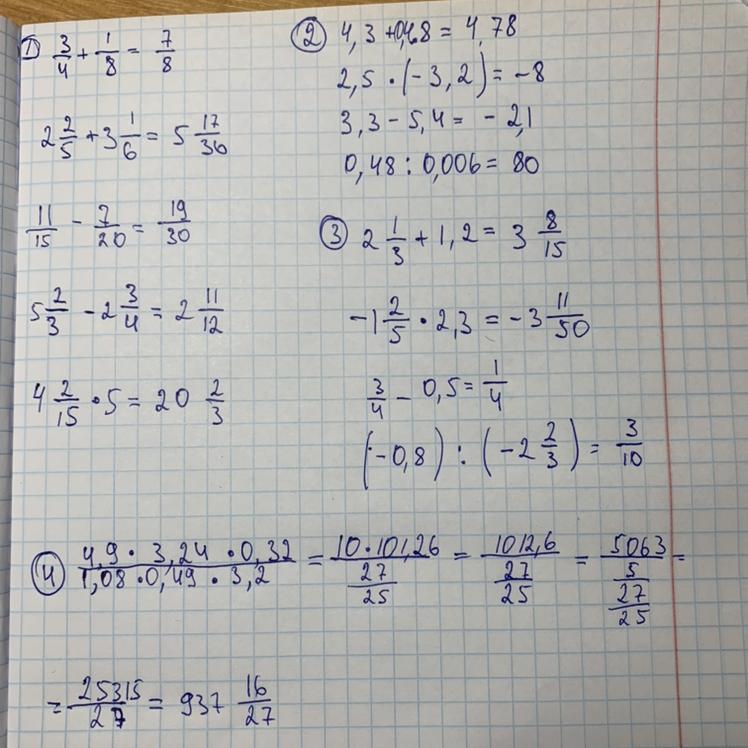 ① 3/4 + 1/8 = 7/8
2 2/5 + 3 1/6 = 5 17/36
11/15 - 7/20 = 19/30
5 2/3 - 2 3/4 = 2 11/12
4 2/15 · 5 = 20 2/3
② 4,3 + 0,48 = 4,78
2,5 · (-3,2) = -8
3,3 - 5,4 = -2,1
0,48 : 0,006 = 80
③ 2 1/3 + 1,2 = 3 8/15
-1 2/5 · 2,3 = -3 11/50
3/4 - 0,5 = 1/4
(-0,8) : (-2 2/3) = 3/10
④ (4,9 · 3,24 · 0,32)/(1,08 · 0,49 · 3,2) = (10 · 101,26)/(27/25) = 1012,6/(27/25) = (5063/5)/(27/25) =
= 25315/27 = 937 16/27